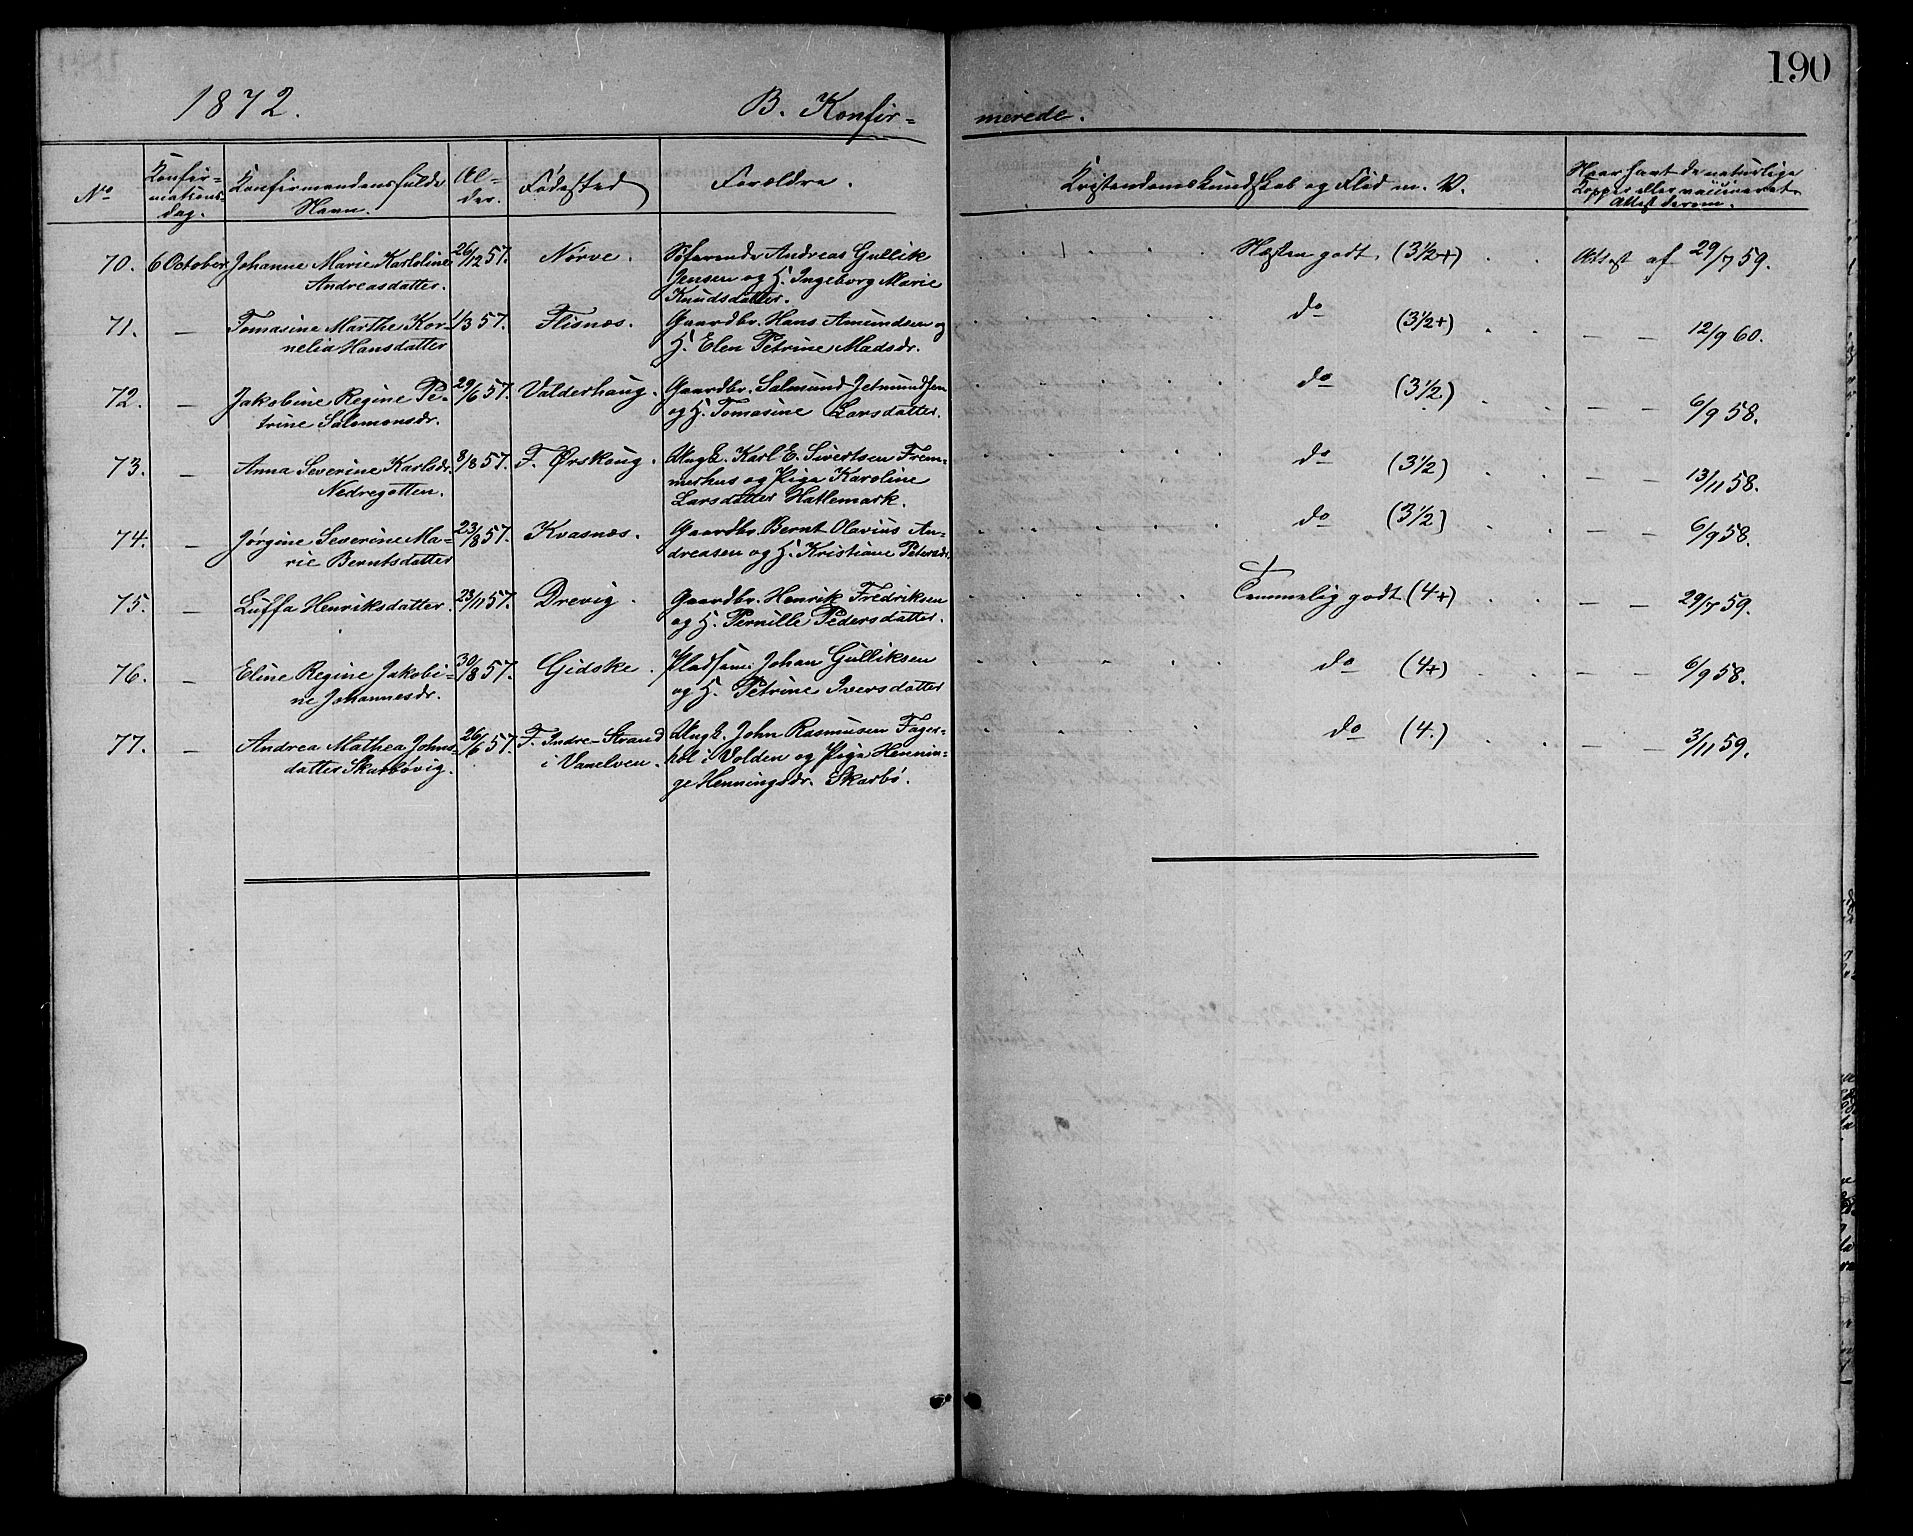 190
1872. B. Konfir- merede.
No Konfir- mations- dag. Konfirmandens fulde Navn. Al- der. Fødested Forældre. Kristendomskundskab og Flid m. V. Har havt de naturlige Kopper eller vaccineret Attest derom.
70. 6 October Johanne Marie Karloline 26/12 57. Nørve. Søfarende Andreas Gullik Hæsten godt. (3½+) Attest af 29/7 59.
Andreasdatter. Jensen og H. Ingeborg Marie
Knudsdatter.
71. — Tomasine Marthe Kor- 1/3 57. Flisnæs. Gaardbr. Hans Amundsen og do (3½+) — — 12/9 60.
nelia Hansdatter H. Elen Petrine Madsdr.
72. — Jakobine Regine Pe- 29/6 57. Valderhaug. Gaardbr. Salmund Jetmundsen do (3½) — — 6/9 58.
trine Salomonsdr. og H. Tomasine Larsdatter.
73. — Anna Severine Karlsdr. 8/8 57. F. Ørskoug. Ungk. Karl E. Sivertsen Frem- do (3½) — — 13/11 58.
Nedregotten. merhus og Pige Karoline
Larsdatter Hatlemark.
74. — Jørgine Severine Ma- 23/8 57. Kvasnæs. Gaardbr. Bernt Olavius An- do (3½) — — 6/9 58.
rie Berntsdatter dreasen og H. Kristiane Petersdr.
75. — Luffa Henriksdatter. 23/11 57. Drevig. Gaardbr. Henrik Fredriksen Temmelig godt (4+) — — 29/7 59.
og H. Pernille Pedersdatter.
76. — Eline Regine Jakobi- 30/8 57. Gidske. Pladsem. Johan Gulliksen do (4+) — — 6/9 58.
ne Johannesdr. og H. Petrine Iversdatter
77. — Andrea Mathea Johns- 26/6 57. F. Indre-Strand Ungk. John Rasmusen Fager- do (4.) — — 3/11 59.
datter Skarbøvig. i Vanelven. hol i Volden og Pige Hennin-
ge Henningsdr. Skarbø.